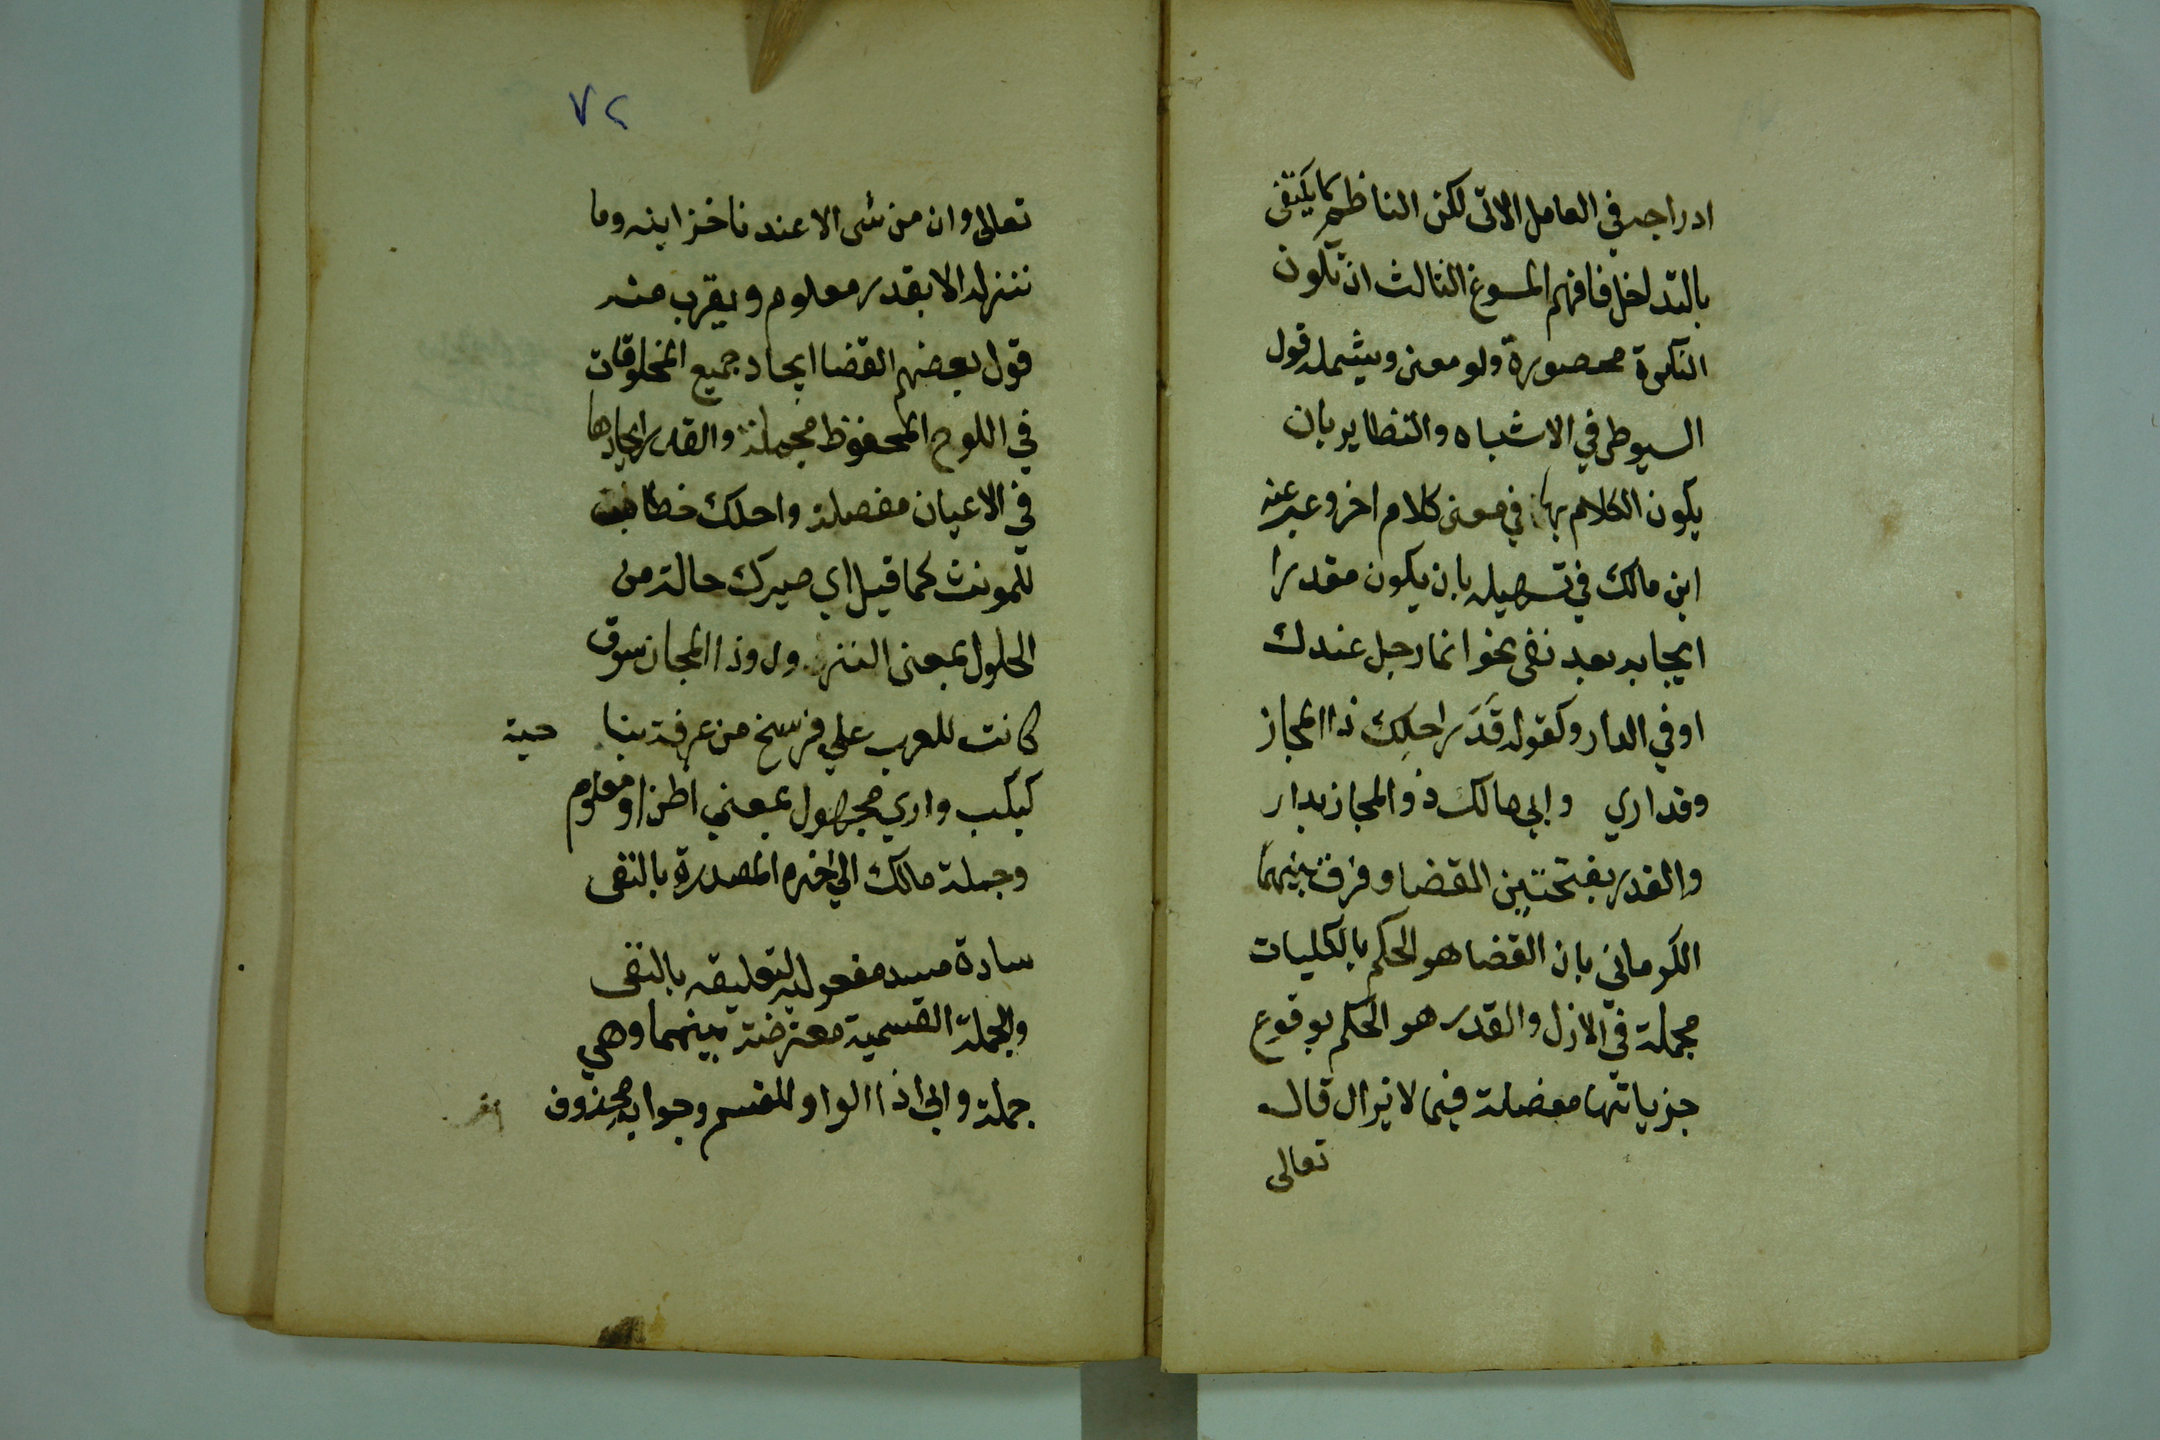 ادراجه في العامل الاتي لكن الناظم كما يكتفى
بالتداخل فافهم المسوغ الثالث ان تكون
النكرة محصورة ولو معنى ويشمله قول
السيوطي في الاشباه والنظاير بان
يكون الكلام بها في معنى كلام اخر وعبر عنه
ابن مالك في تسهيله بان يكون مقدرا
ايجابه بعد نفى نحو انما رجل عندك
او في الدار وكقوله قَدَر احلِك ذا المجاز
وقد اري وابي مالك ذو المجاز بدار
والقدر بفتحتين القضا وفرق بينهما
الكرماني بان القضا هو الحكم بالكليات
مجملة في الازل والقدر هو الحكم بوقوع
جزياتها مفصلة فيما لا يزال قال
تعالى
٧٢
تعالى وان من شى الا عندنا خزاينه وما
ننزله الا بقدر معلوم ويقرب منه
قول بعضهم القضا ايجاد جميع المخلوقات
في اللوح المحفوظ مجملة والقدر ايجادها
في الاعيان مفصلة واحلك خطاب
للمونث كما قيل اي صيرك حالة من
الحلول بمعنى النزول وذا المجاز سوق
كانت للعرب علي فرسخ من عرفة بنا حية
كبكب واري مجهول بمعني اظن او معلوم
وجملة مالك الي اخره المصدرة بالنفى
سادة مسد مفعوليه لتعليقه بالنفى
والجملة القسمية معترضة بينهما وهي
جملة وابي اذ الواو للقسم وجوابه محذوف